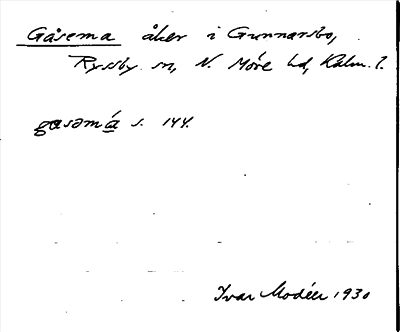 Gåsema åker i Gunnarsbo,
Ryssby sn, N. Möre hd, Kalm. l.
gasəmá s. 144.
Ivar Modéer 1930